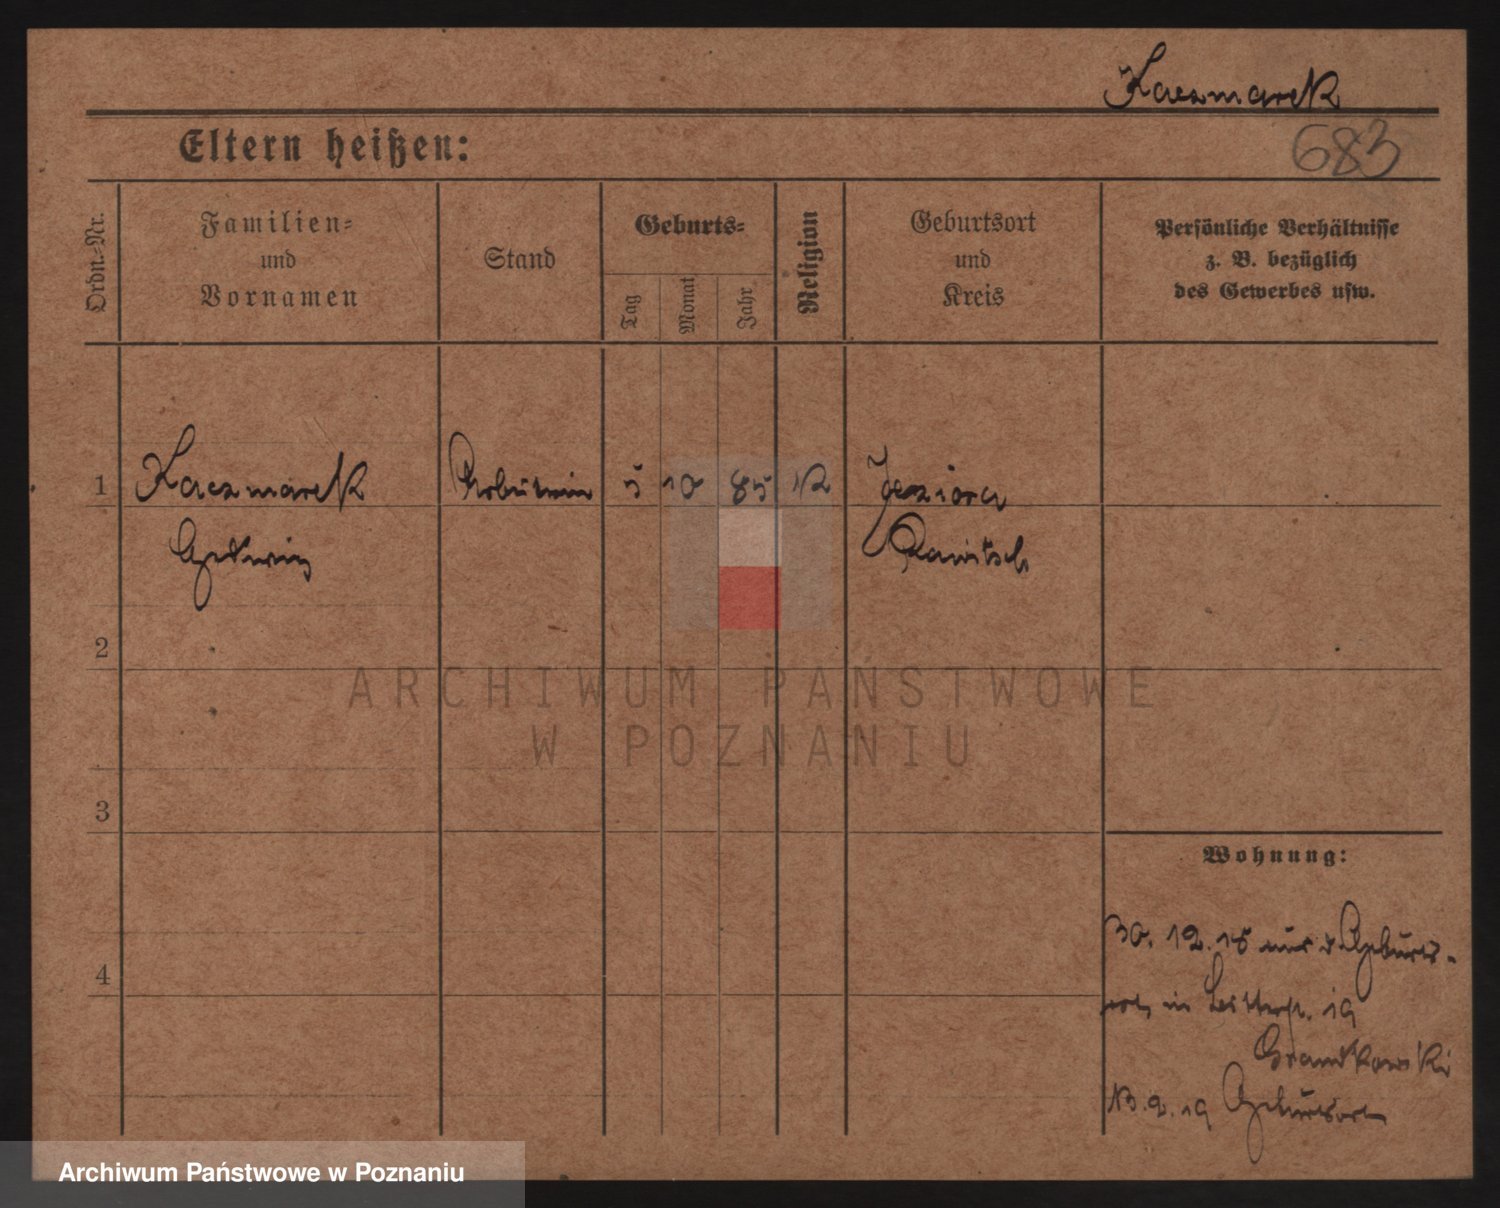 Kaczmarek
683
Eltern heißen:
Ordn.-Nr.
Familien-
und
Vornamen
Stand
Geburts-
Tag
Monat
Jahr
Religion
Geburtsort
und
Kreis
Persönliche Verhältnisse
z. B. bezüglich
des Gewerbes usw.
1 Kaczmarek Arbeiterin 5 10 85 K Jeziora
Hedwig Rawitsch
2
ARCHIWUM PAŃSTWOWE
W POZNANIU
3
Wohnung:
30. 12. 18 aus d Geburts-
ort, in 19
4
Geburtsort
Archiwum Państwowe w Poznaniu